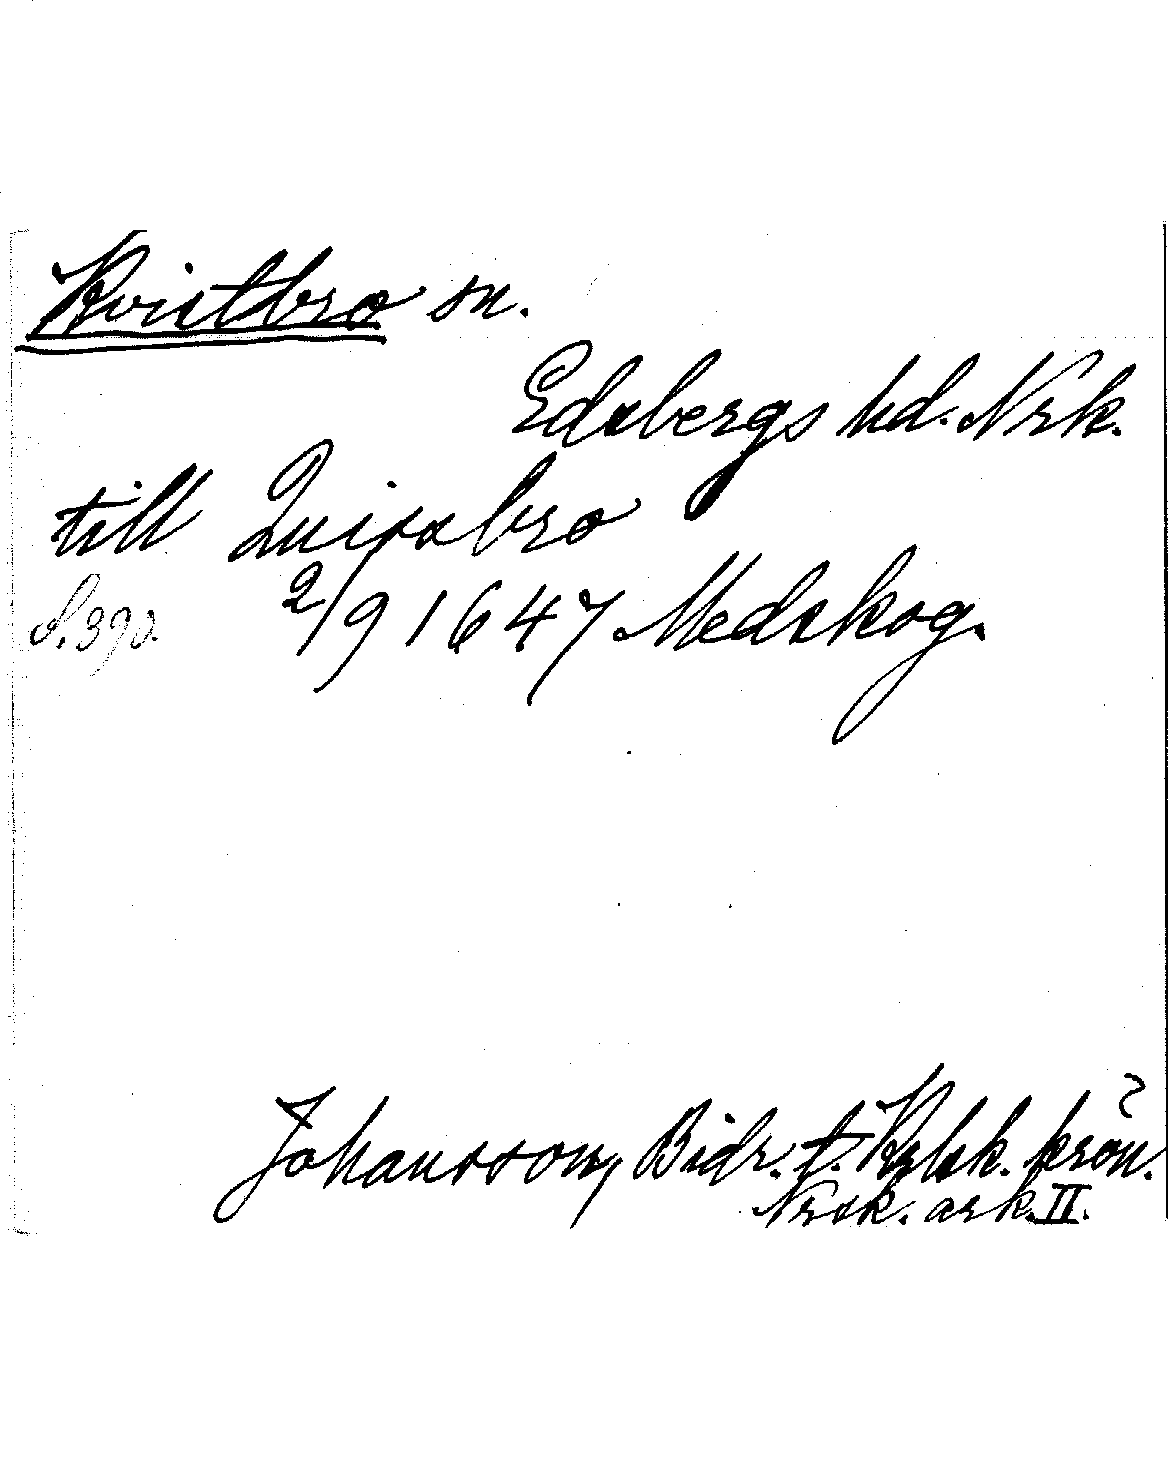 Kvistbro sn.
Edsbergs hd. Nrk.
till Quissbro
S. 390. 2/9 1647 Medskog.
Johansson, Bidr. t. Krkk. krön.
Nrsk. ark. II.